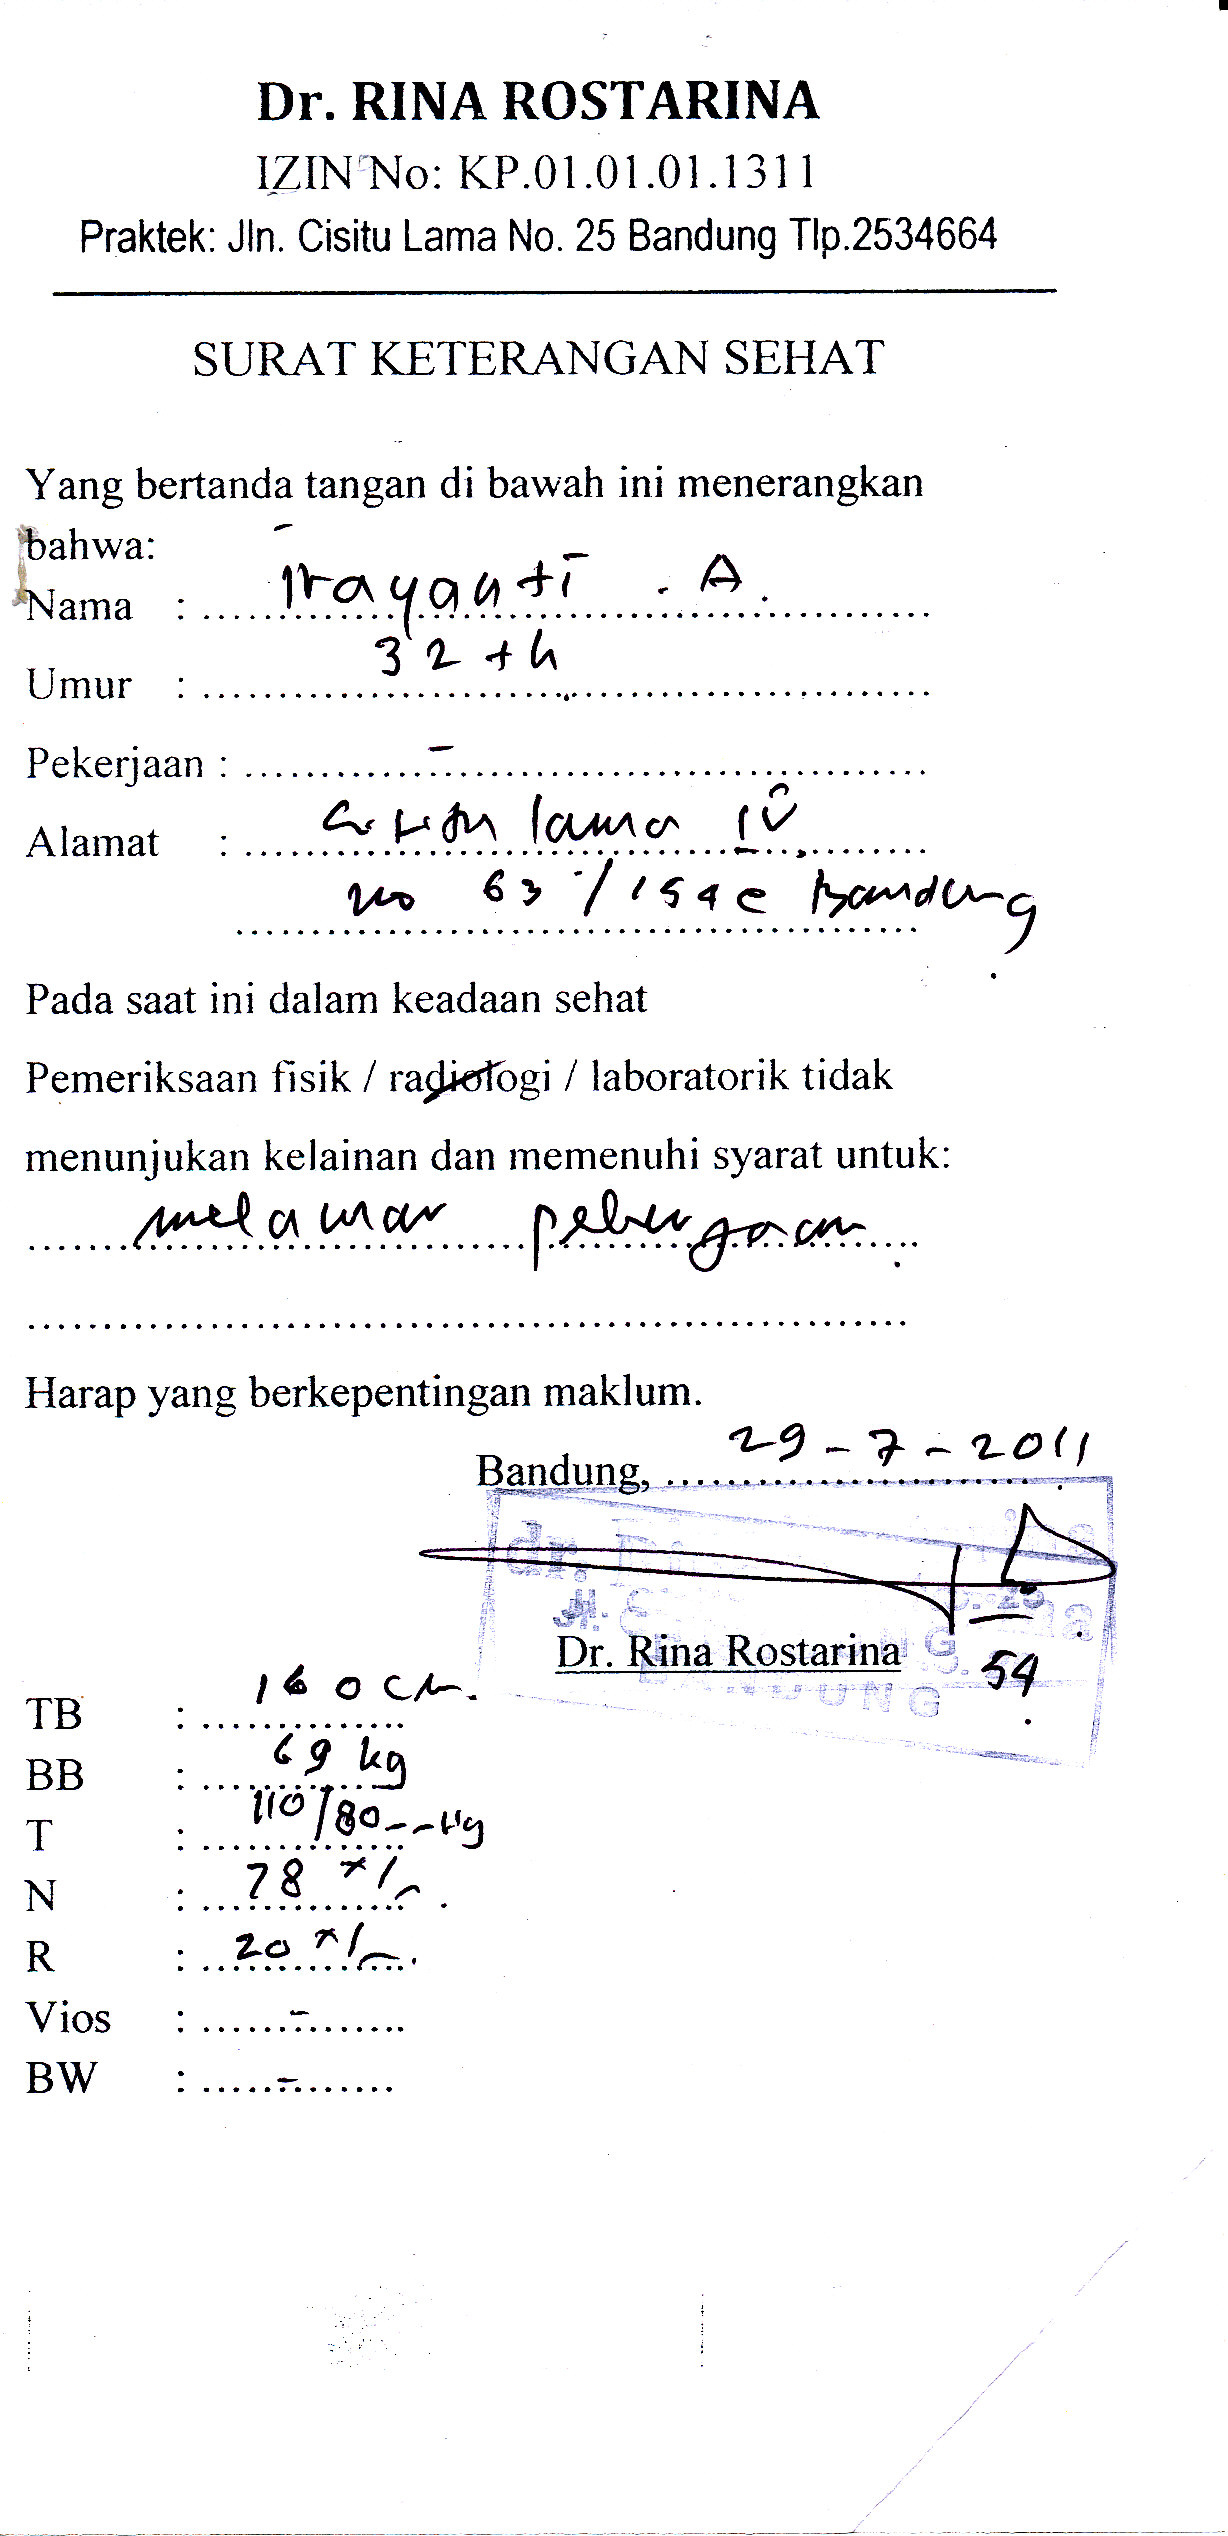 Dr. RINA ROSTARINA
IZIN No: KP.01.01.01.1311
Praktek: Jln. Cisitu Lama No. 25 Bandung Tlp.2534664
SURAT KETERANGAN SEHAT
Yang bertanda tangan di bawah ini menerangkan
bahwa:
Nama : Irayanti . A.
Umur : 32 th
Pekerjaan : -
Alamat : Cisitu lama IV
no 63 /154c Bandung
Pada saat ini dalam keadaan sehat
Pemeriksaan fisik / radiologi / laboratorik tidak
menunjukan kelainan dan memenuhi syarat untuk:
melamar pekerjaan
Harap yang berkepentingan maklum.
Bandung, 29-7-2011
dr.
Jl. C 25
BANDUNG
Dr. Rina Rostarina
54
TB : 160 cm.
BB : 69 kg
T : 110/80 mmHg
N : 78 x/m
R : 20 x/m
Vios : -
BW : -